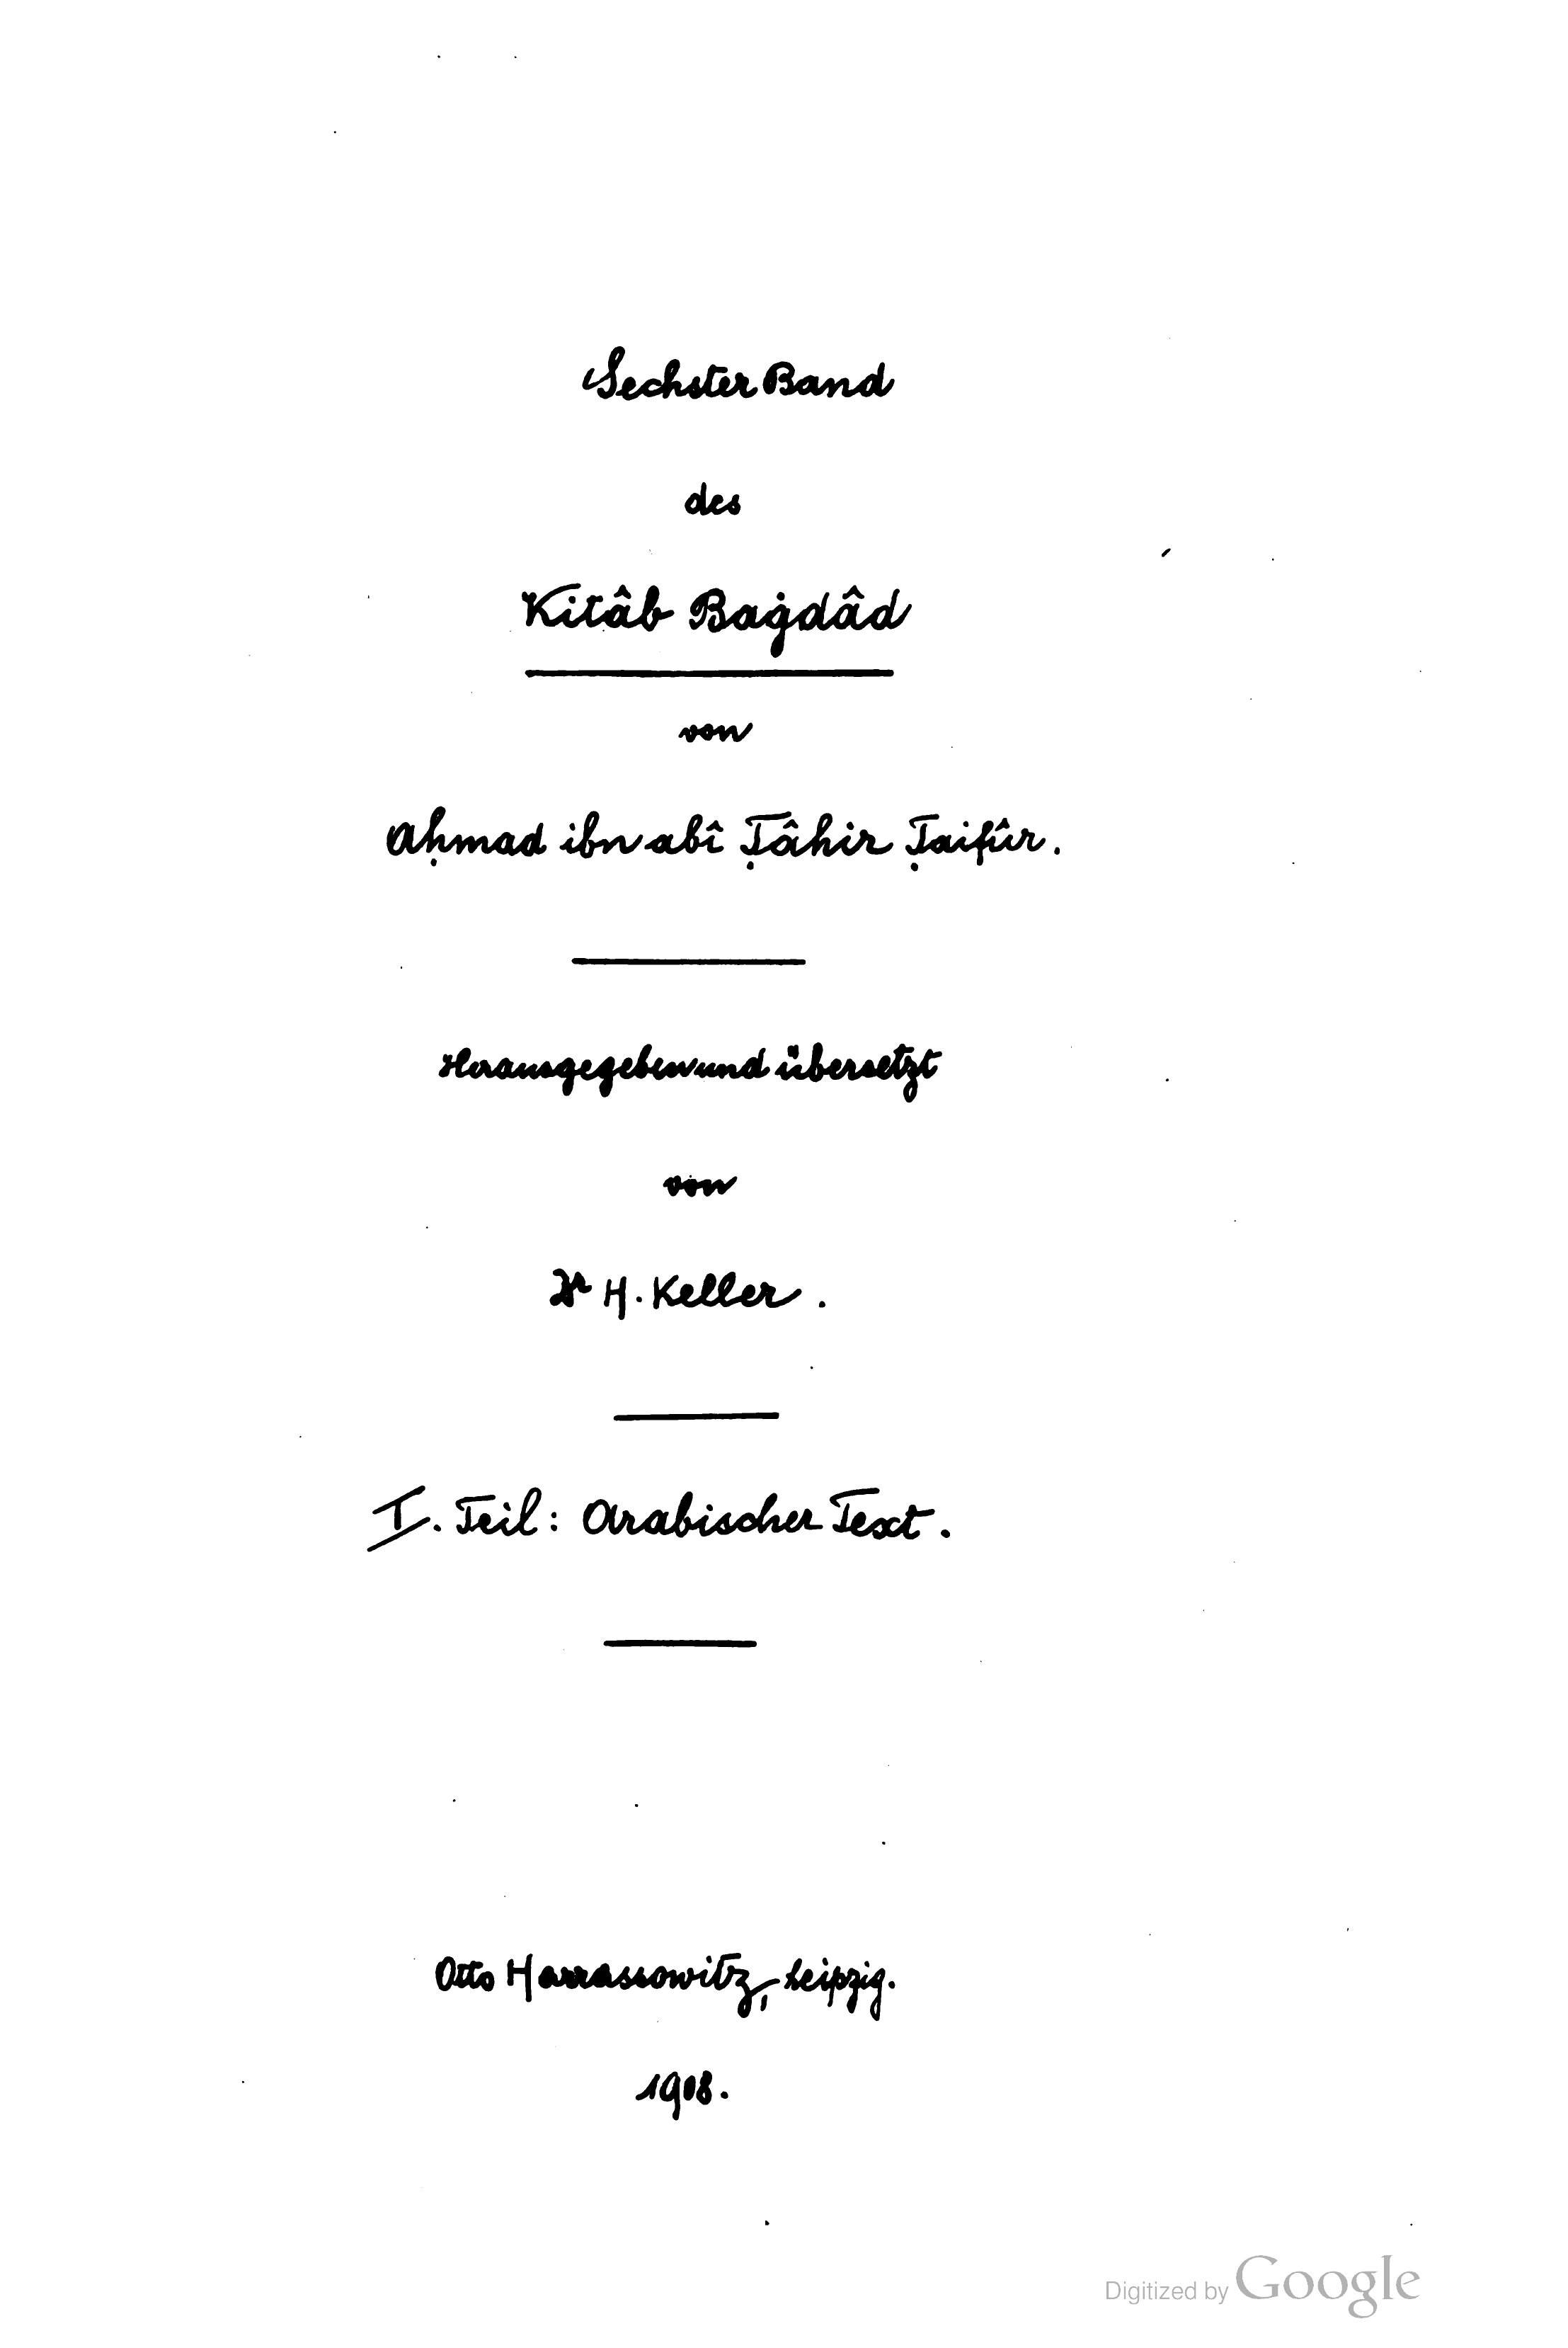 Sechster Band
des
Kitâb Baġdâd
von
Aḥmad ibn abî Ṭâhir Ṭaifûr.
Herausgegeben und übersetzt
von
Dr H. Keller.
I. Teil: Arabischer Text.
Otto Harrassowitz, Leipzig.
1908.
Digitized by Google